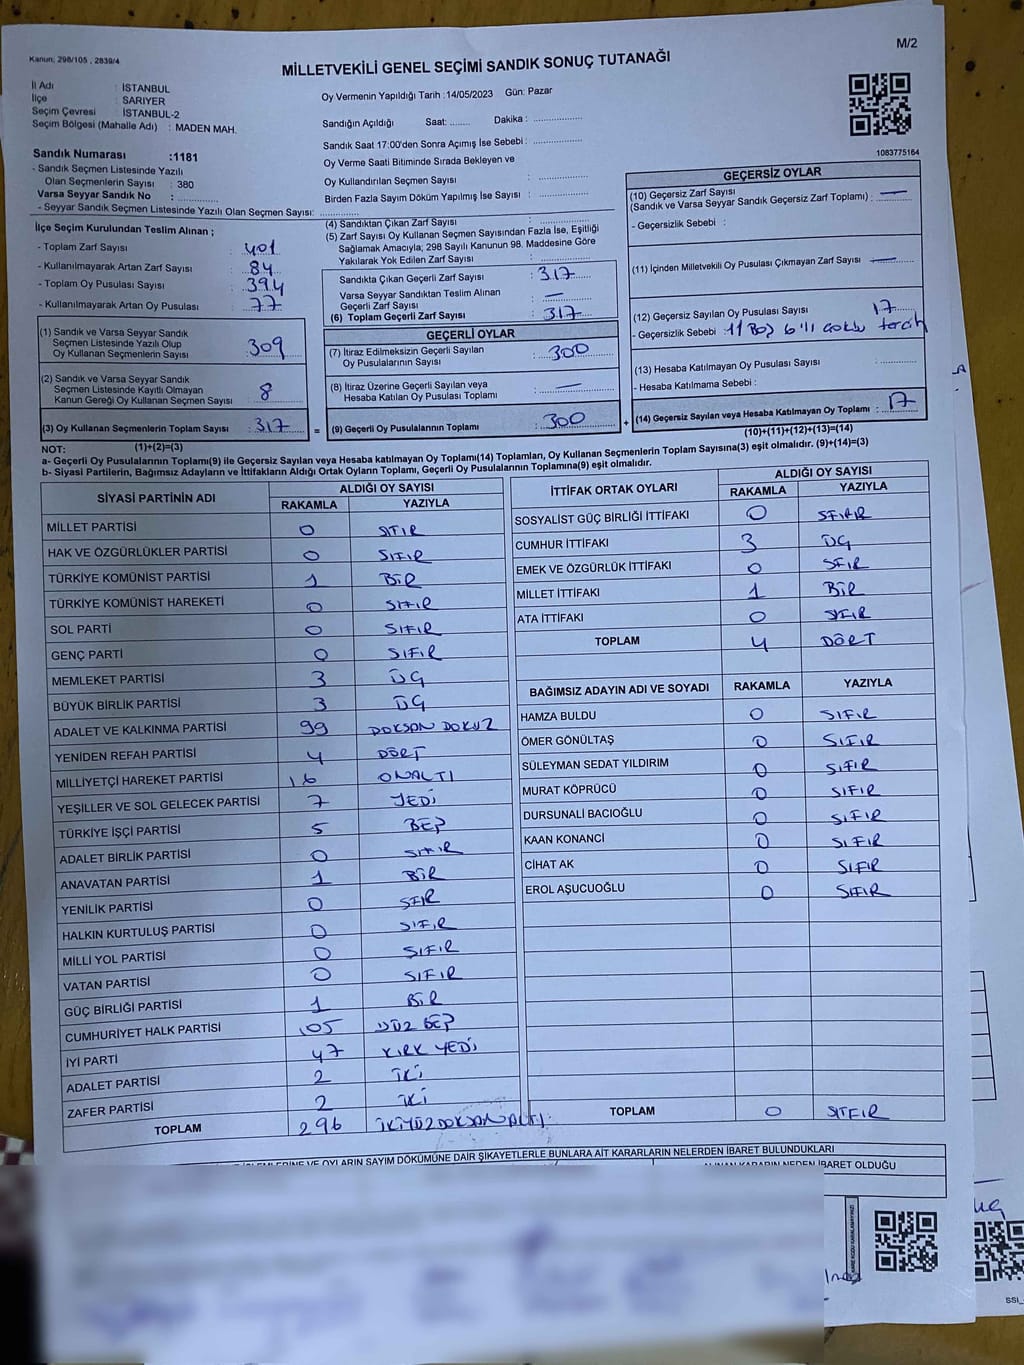 Kanun: 298/105 , 2839/4
M/2
MİLLETVEKİLİ GENEL SEÇİMİ SANDIK SONUÇ TUTANAĞI
İl Adı : İSTANBUL
İlçe : SARIYER
Seçim Çevresi : İSTANBUL-2
Seçim Bölgesi (Mahalle Adı) : MADEN MAH.
Oy Vermenin Yapıldığı Tarih :14/05/2023 Gün: Pazar
Sandığın Açıldığı Saat: ........ Dakika : ................
Sandık Saat 17:00'den Sonra Açımış İse Sebebi : ................
Oy Verme Saati Bitiminde Sırada Bekleyen ve
Oy Kullandırılan Seçmen Sayısı : ................
Birden Fazla Sayım Döküm Yapılmış İse Sayısı : ................
1083775164
Sandık Numarası :1181
- Sandık Seçmen Listesinde Yazılı
Olan Seçmenlerin Sayısı : 380
Varsa Seyyar Sandık No : ................
- Seyyar Sandık Seçmen Listesinde Yazılı Olan Seçmen Sayısı: ................
İlçe Seçim Kurulundan Teslim Alınan ;
- Toplam Zarf Sayısı : 401
- Kullanılmayarak Artan Zarf Sayısı : 84
- Toplam Oy Pusulası Sayısı : 394
- Kullanılmayarak Artan Oy Pusulası : 77
(1) Sandık ve Varsa Seyyar Sandık
Seçmen Listesinde Yazılı Olup
Oy Kullanan Seçmenlerin Sayısı : 309
(2) Sandık ve Varsa Seyyar Sandık
Seçmen Listesinde Kayıtlı Olmayan
Kanun Gereği Oy Kullanan Seçmen Sayısı : 8
(3) Oy Kullanan Seçmenlerin Toplam Sayısı : 317
(1)+(2)=(3)
(4) Sandıktan Çıkan Zarf Sayısı : ................
(5) Zarf Sayısı Oy Kullanan Seçmen Sayısından Fazla İse, Eşitliği
Sağlamak Amacıyla; 298 Sayılı Kanunun 98. Maddesine Göre
Yakılarak Yok Edilen Zarf Sayısı : ................
Sandıkta Çıkan Geçerli Zarf Sayısı : 317
Varsa Seyyar Sandıktan Teslim Alınan
Geçerli Zarf Sayısı : —
(6) Toplam Geçerli Zarf Sayısı : 317
GEÇERLİ OYLAR
(7) İtiraz Edilmeksizin Geçerli Sayılan
Oy Pusulalarının Sayısı : 300
(8) İtiraz Üzerine Geçerli Sayılan veya
Hesaba Katılan Oy Pusulası Toplamı : —
= (9) Geçerli Oy Pusulalarının Toplamı : 300 +
GEÇERSİZ OYLAR
(10) Geçersiz Zarf Sayısı
(Sandık ve Varsa Seyyar Sandık Geçersiz Zarf Toplamı) : —
- Geçersizlik Sebebi :
(11) İçinden Milletvekili Oy Pusulası Çıkmayan Zarf Sayısı : —
(12) Geçersiz Sayılan Oy Pusulası Sayısı : 17
- Geçersizlik Sebebi : 11 Boş 6'lı çoklu tercih
(13) Hesaba Katılmayan Oy Pusulası Sayısı : ................
- Hesaba Katılmama Sebebi :
(14) Geçersiz Sayılan veya Hesaba Katılmayan Oy Toplamı : 17
(10)+(11)+(12)+(13)=(14)
NOT:
a- Geçerli Oy Pusulalarının Toplamı(9) ile Geçersiz Sayılan veya Hesaba Katılmayan Oy Toplamı(14) Toplamları, Oy Kullanan Seçmenlerin Toplam Sayısına(3) eşit olmalıdır. (9)+(14)=(3)
b- Siyasi Partilerin, Bağımsız Adayların ve İttifakların Aldığı Ortak Oyların Toplamı, Geçerli Oy Pusulalarının Toplamına(9) eşit olmalıdır.
SİYASİ PARTİNİN ADI
ALDIĞI OY SAYISI
RAKAMLA YAZIYLA
MİLLET PARTİSİ 0 SIFIR
HAK VE ÖZGÜRLÜKLER PARTİSİ 0 SIFIR
TÜRKİYE KOMÜNİST PARTİSİ 1 BİR
TÜRKİYE KOMÜNİST HAREKETİ 0 SIFIR
SOL PARTİ 0 SIFIR
GENÇ PARTİ 0 SIFIR
MEMLEKET PARTİSİ 3 ÜÇ
BÜYÜK BİRLİK PARTİSİ 3 ÜÇ
ADALET VE KALKINMA PARTİSİ 99 DOKSAN DOKUZ
YENİDEN REFAH PARTİSİ 4 DÖRT
MİLLİYETÇİ HAREKET PARTİSİ 16 ONALTI
YEŞİLLER VE SOL GELECEK PARTİSİ 7 YEDİ
TÜRKİYE İŞÇİ PARTİSİ 5 BEŞ
ADALET BİRLİK PARTİSİ 0 SIFIR
ANAVATAN PARTİSİ 1 BİR
YENİLİK PARTİSİ 0 SFIR
HALKIN KURTULUŞ PARTİSİ 0 SIFIR
MİLLİ YOL PARTİSİ 0 SIFIR
VATAN PARTİSİ 0 SIFIR
GÜÇ BİRLİĞİ PARTİSİ 1 BİR
CUMHURİYET HALK PARTİSİ 105 YÜZ BEŞ
İYİ PARTİ 47 KIRK YEDİ
ADALET PARTİSİ 2 İKİ
ZAFER PARTİSİ 2 İKİ
TOPLAM 296 İKİYÜZDOKSANALTI
İTTİFAK ORTAK OYLARI
ALDIĞI OY SAYISI
RAKAMLA YAZIYLA
SOSYALİST GÜÇ BİRLİĞİ İTTİFAKI 0 SIFIR
CUMHUR İTTİFAKI 3 ÜÇ
EMEK VE ÖZGÜRLÜK İTTİFAKI 0 SFIR
MİLLET İTTİFAKI 1 BİR
ATA İTTİFAKI 0 SIFIR
TOPLAM 4 DÖRT
BAĞIMSIZ ADAYIN ADI VE SOYADI RAKAMLA YAZIYLA
HAMZA BULDU 0 SIFIR
ÖMER GÖNÜLTAŞ 0 SIFIR
SÜLEYMAN SEDAT YILDIRIM 0 SIFIR
MURAT KÖPRÜCÜ 0 SIFIR
DURSUNALİ BACIOĞLU 0 SIFIR
KAAN KONANCİ 0 SIFIR
CİHAT AK 0 SIFIR
EROL AŞUCUOĞLU 0 SIFIR
TOPLAM 0 SIFIR
VE OYLARIN SAYIM DÖKÜMÜNE DAİR ŞİKAYETLERLE BUNLARA AİT KARARLARIN NELERDEN İBARET BULUNDUKLARI
ALINAN KARARIN NEDEN İBARET OLDUĞU
SSI_